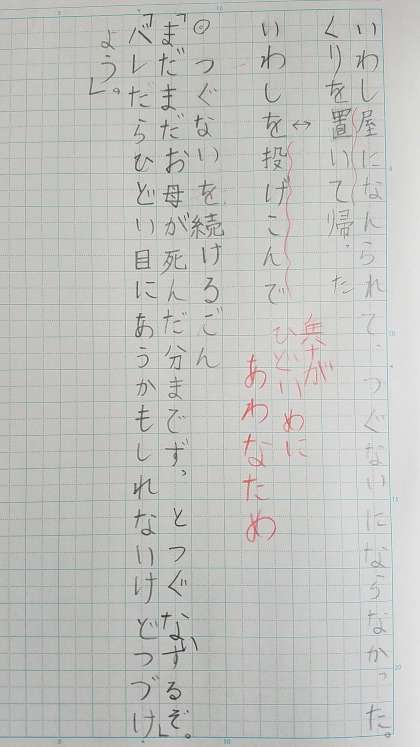 いわし屋になんられて、つぐないにならなかった。
くりを置いて帰った
↔
いわしを投げこんで
兵十が
ひどいめに
あわなため
◎つぐないを続けるごん
「まだまだお母が死んだ分までず。とつぐないするぞ。」
「バレたらひどい目にあうかもしれないけどつづけ
よう」。